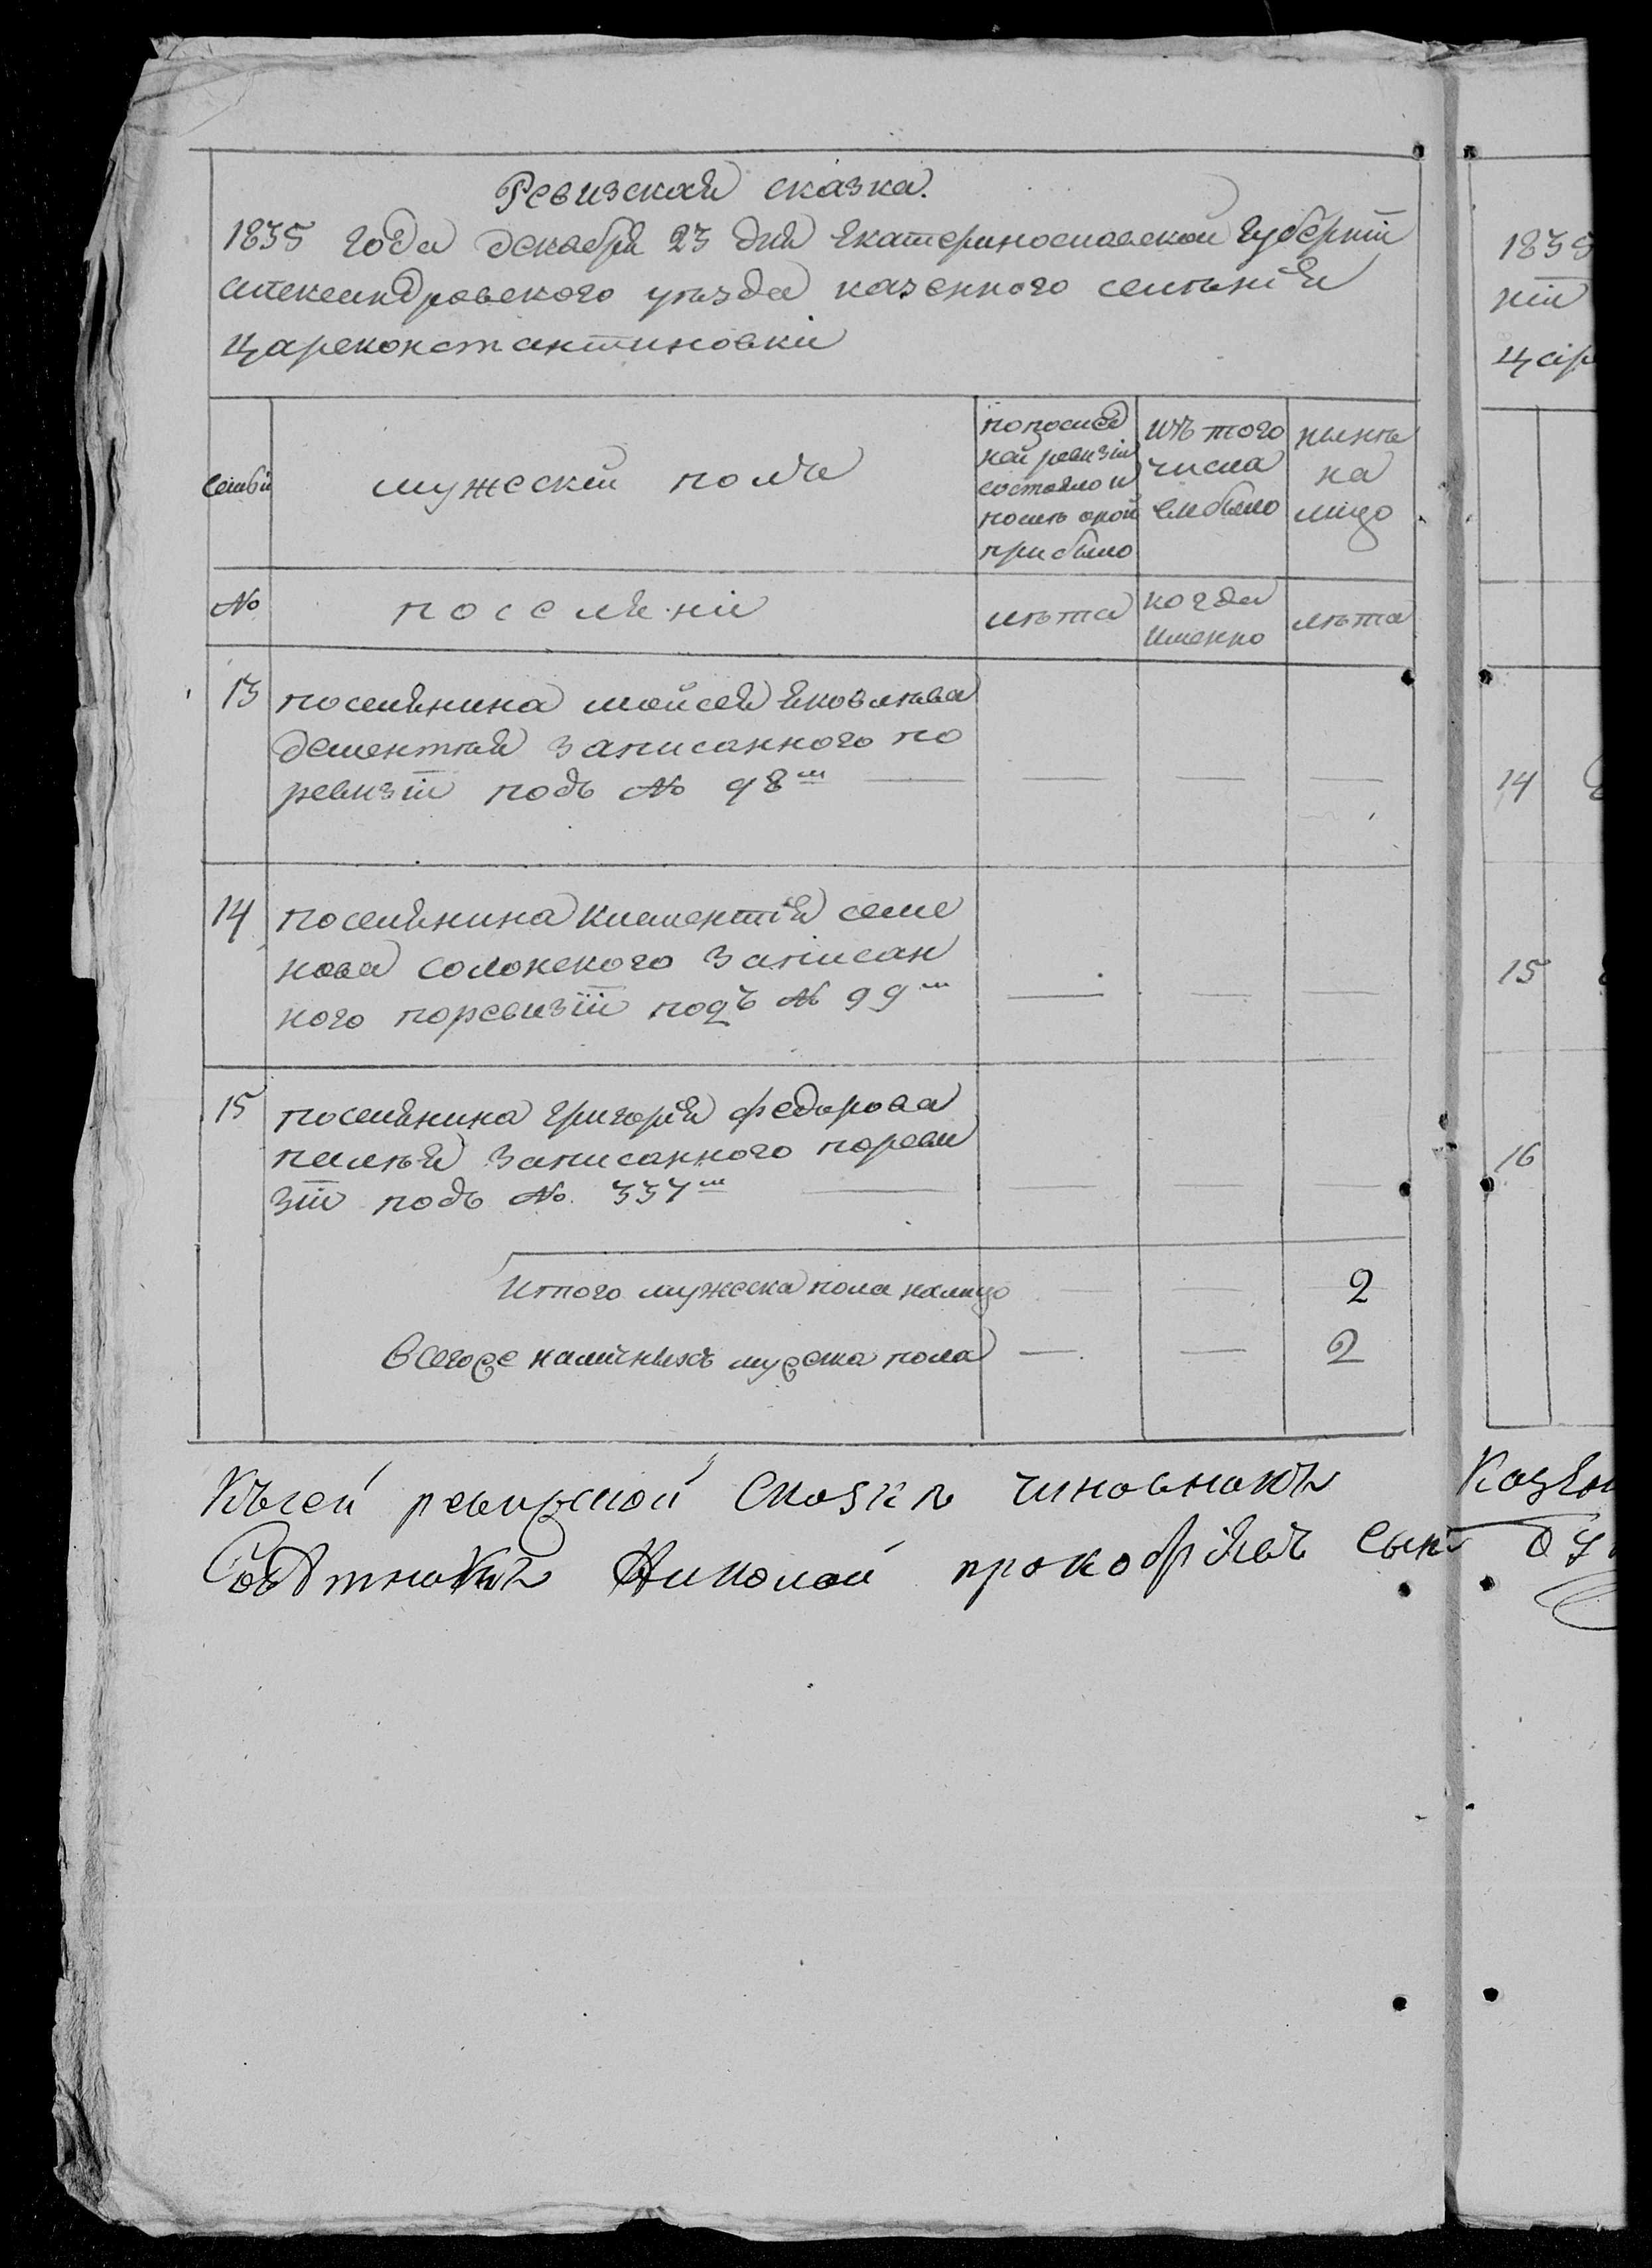 Ревизская сказка.
1835 года декабря 23 дня Екатеринославской губернїи
александровского уѣзда казенного селѣнїя
Цареконстантиновки
семьи
мужескїй полъ
попослед
ней ревизїи
состояло и
послѣ оной
прибыло
изъ того
числа
выбыло
нынѣ
на
лицо
№
поселяни
лѣта
когда
именно
лѣта
13
поселянина мойсея яковлѣва
дементѣя записанного по
ревизїи подъ № 98м
14
поселянина климентїя семе
нова солонского записан
ного поревизїи подъ № 99м
15
поселянина григорїя федорова
записанного покреви
зїи подъ № 337м
Итого мужеска пола налицо
2
Всегоже наличныхъ мужеска пола
2
Къ сей ревизской сказкѣ чиновникъ
Николай прокофїевъ сынъ
1835
нїи
цар
14
15
16